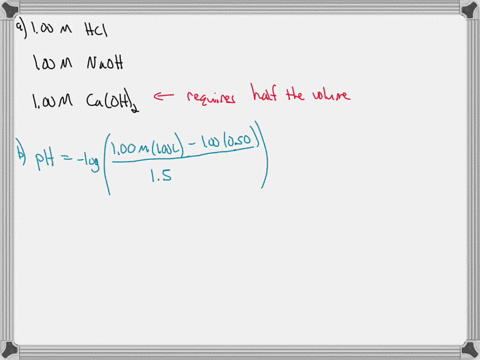 a) 1.00 M HCl
1.00 M NaOH
1.00 M Ca(OH)₂ ← requires half the volume
b) pH = -log( (1.00 M (1.00 L) - 1.00 (0.50)) / 1.5 )